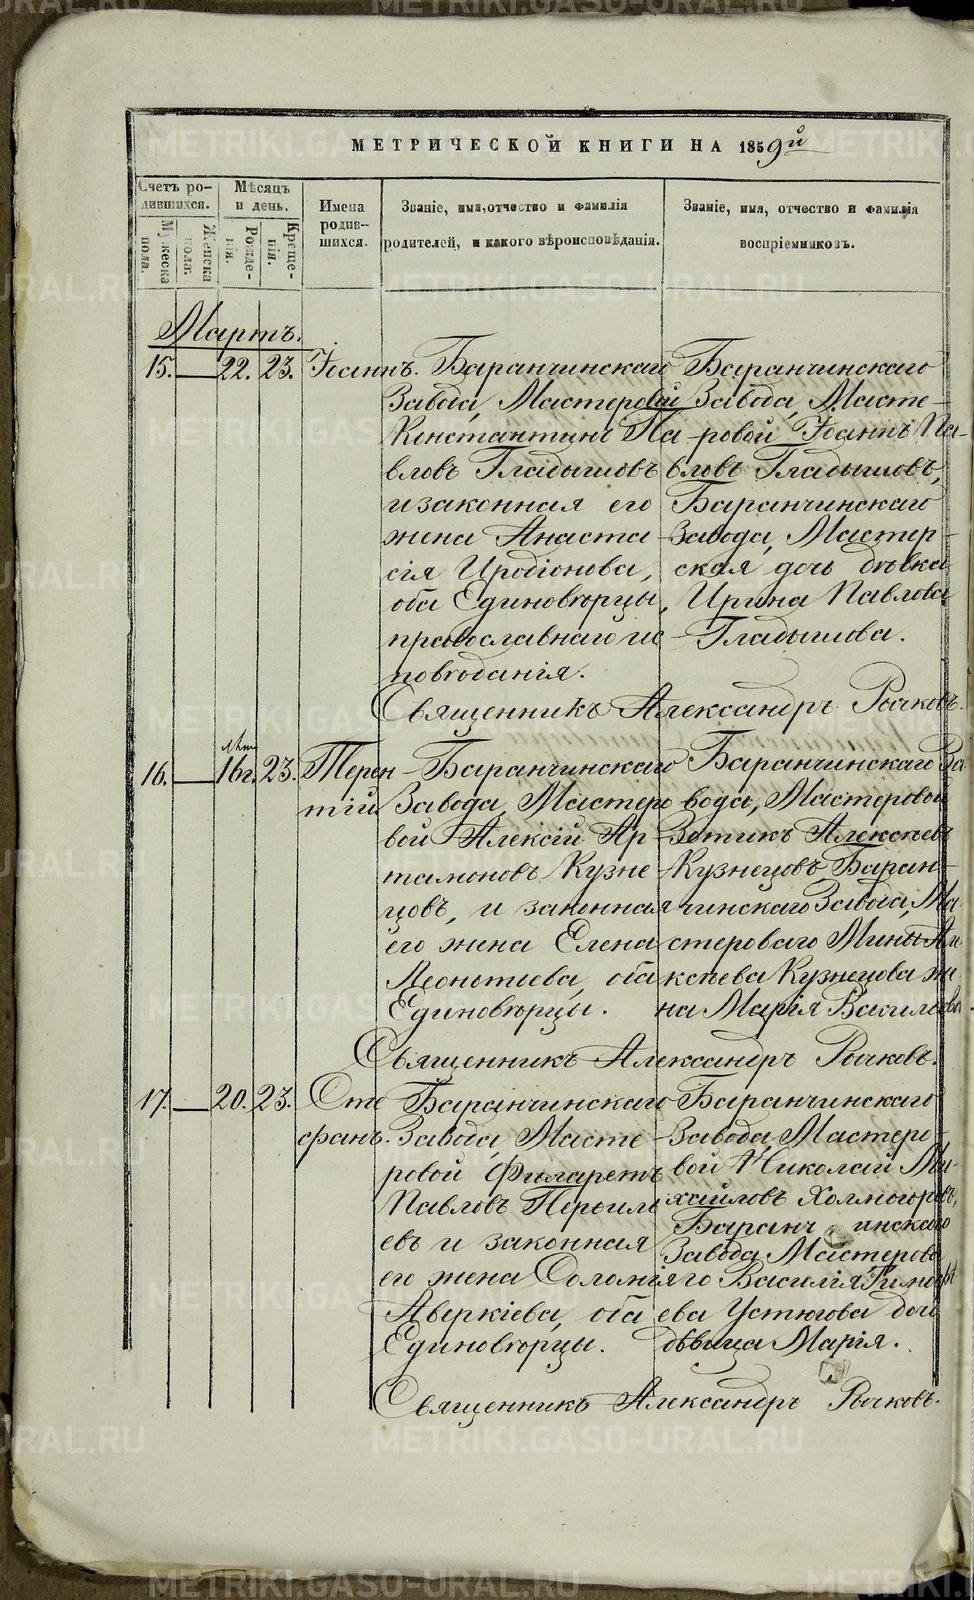 МЕТРИЧЕСКОЙ КНИГИ НА 1859й
Счетъ ро-
дившихся.
Мѣсяцъ
и день.
Имена
родив-
шихся.
Званіе, имя, отчество и фамилія
родителей, и какого вѣроисповѣданія.
Званіе, имя, отчество и фамилія
воспріемниковъ.
Мужеска
пола.
Женска
пола.
Рожде-
нія.
Креще-
нія.
Мартъ.
15. 22. 23. Іоаннъ.
Баранчинскаго
Завода, Мастеровой
Константинъ Па-
вловъ Гладышовъ
и законная его
жена Анаста-
сія Иродіонова,
оба Единовѣрцы,
православнаго ис-
повѣданія.
Баранчинскаго
Завода, Масте-
ровой Іоаннъ Па-
вловъ Гладышовъ,
Баранчинскаго
Завода, Мастер-
ская дочь дѣвка
Ирина Павлова
Гладышова.
Священникъ Александръ Рычковъ.
16. 16г. 23. Терен-
тій
Баранчинскаго
Завода, Мастеро-
вой Алексій Ар-
тамоновъ Кузне-
цовъ, и законная
его жена Елена
Леонтьева, оба
Единовѣрцы.
Баранчинскаго За-
вода, Мастеровой
Зотикъ Алексѣевъ
Кузнецовъ, Баран-
чинскаго Завода, Ма-
стероваго Мины Але-
ксѣева Кузнецова же-
на Марія Васильева
Священникъ Александръ Рычковъ.
17. 20. 23. Сте-
фанъ.
Баранчинскаго
Завода, Масте-
ровой Филаретъ
Павловъ
евъ и законная
его жена Соломія
Аверкіева, оба
Единовѣрцы.
Баранчинскаго
Завода, Мастеро-
вой Николай Ми-
хайловъ Холмогоровъ,
Баранчинскаго
Завода Мастерова-
го Василія Тимоѳе-
ева Устюгова дочь
дѣвица Марія.
Священникъ Александръ Рычковъ.
METRIKI.GASO-URAL.RU